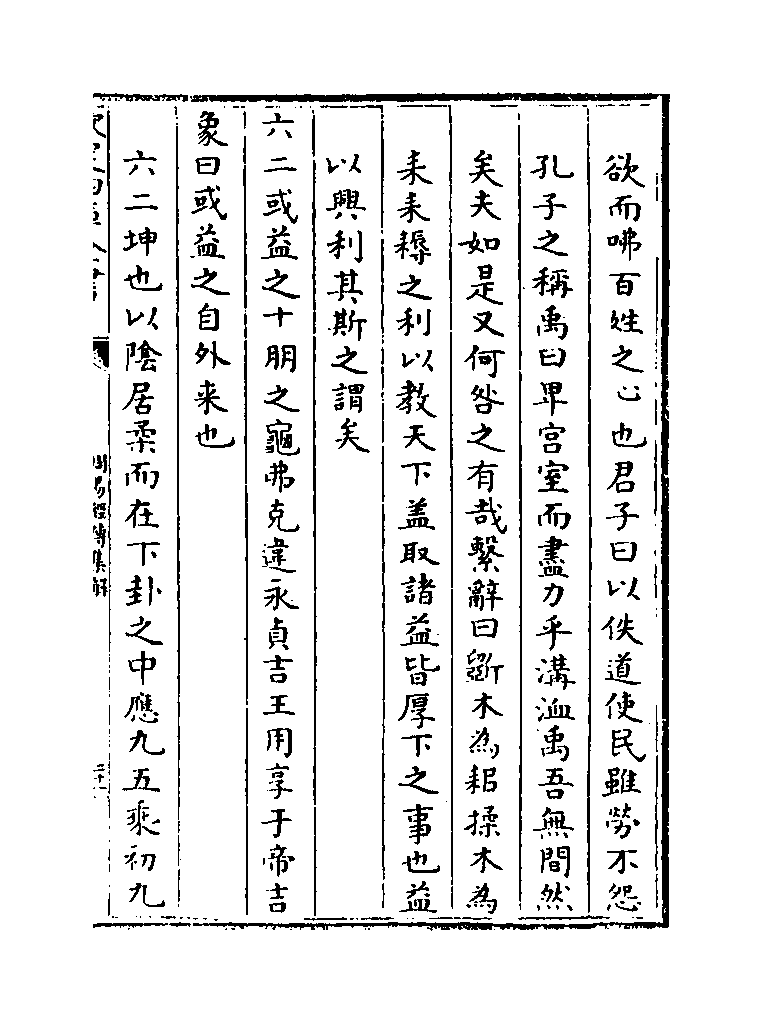 欲而咈百姓之心也君子曰以佚道使民雖勞不怨
孔子之稱禹曰卑宫室而盡力乎溝洫禹吾無間然
矣夫如是又何咎之有哉繫辭曰斲木為耜揉木為
耒耒耨之利以教天下盖取諸益皆厚下之事也益
以興利其斯之謂矣
六二或益之十朋之龜弗克違永貞吉王用享于帝吉
象曰或益之自外来也
六二坤也以陰居柔而在下卦之中應九五乘初九
周易經傳集解